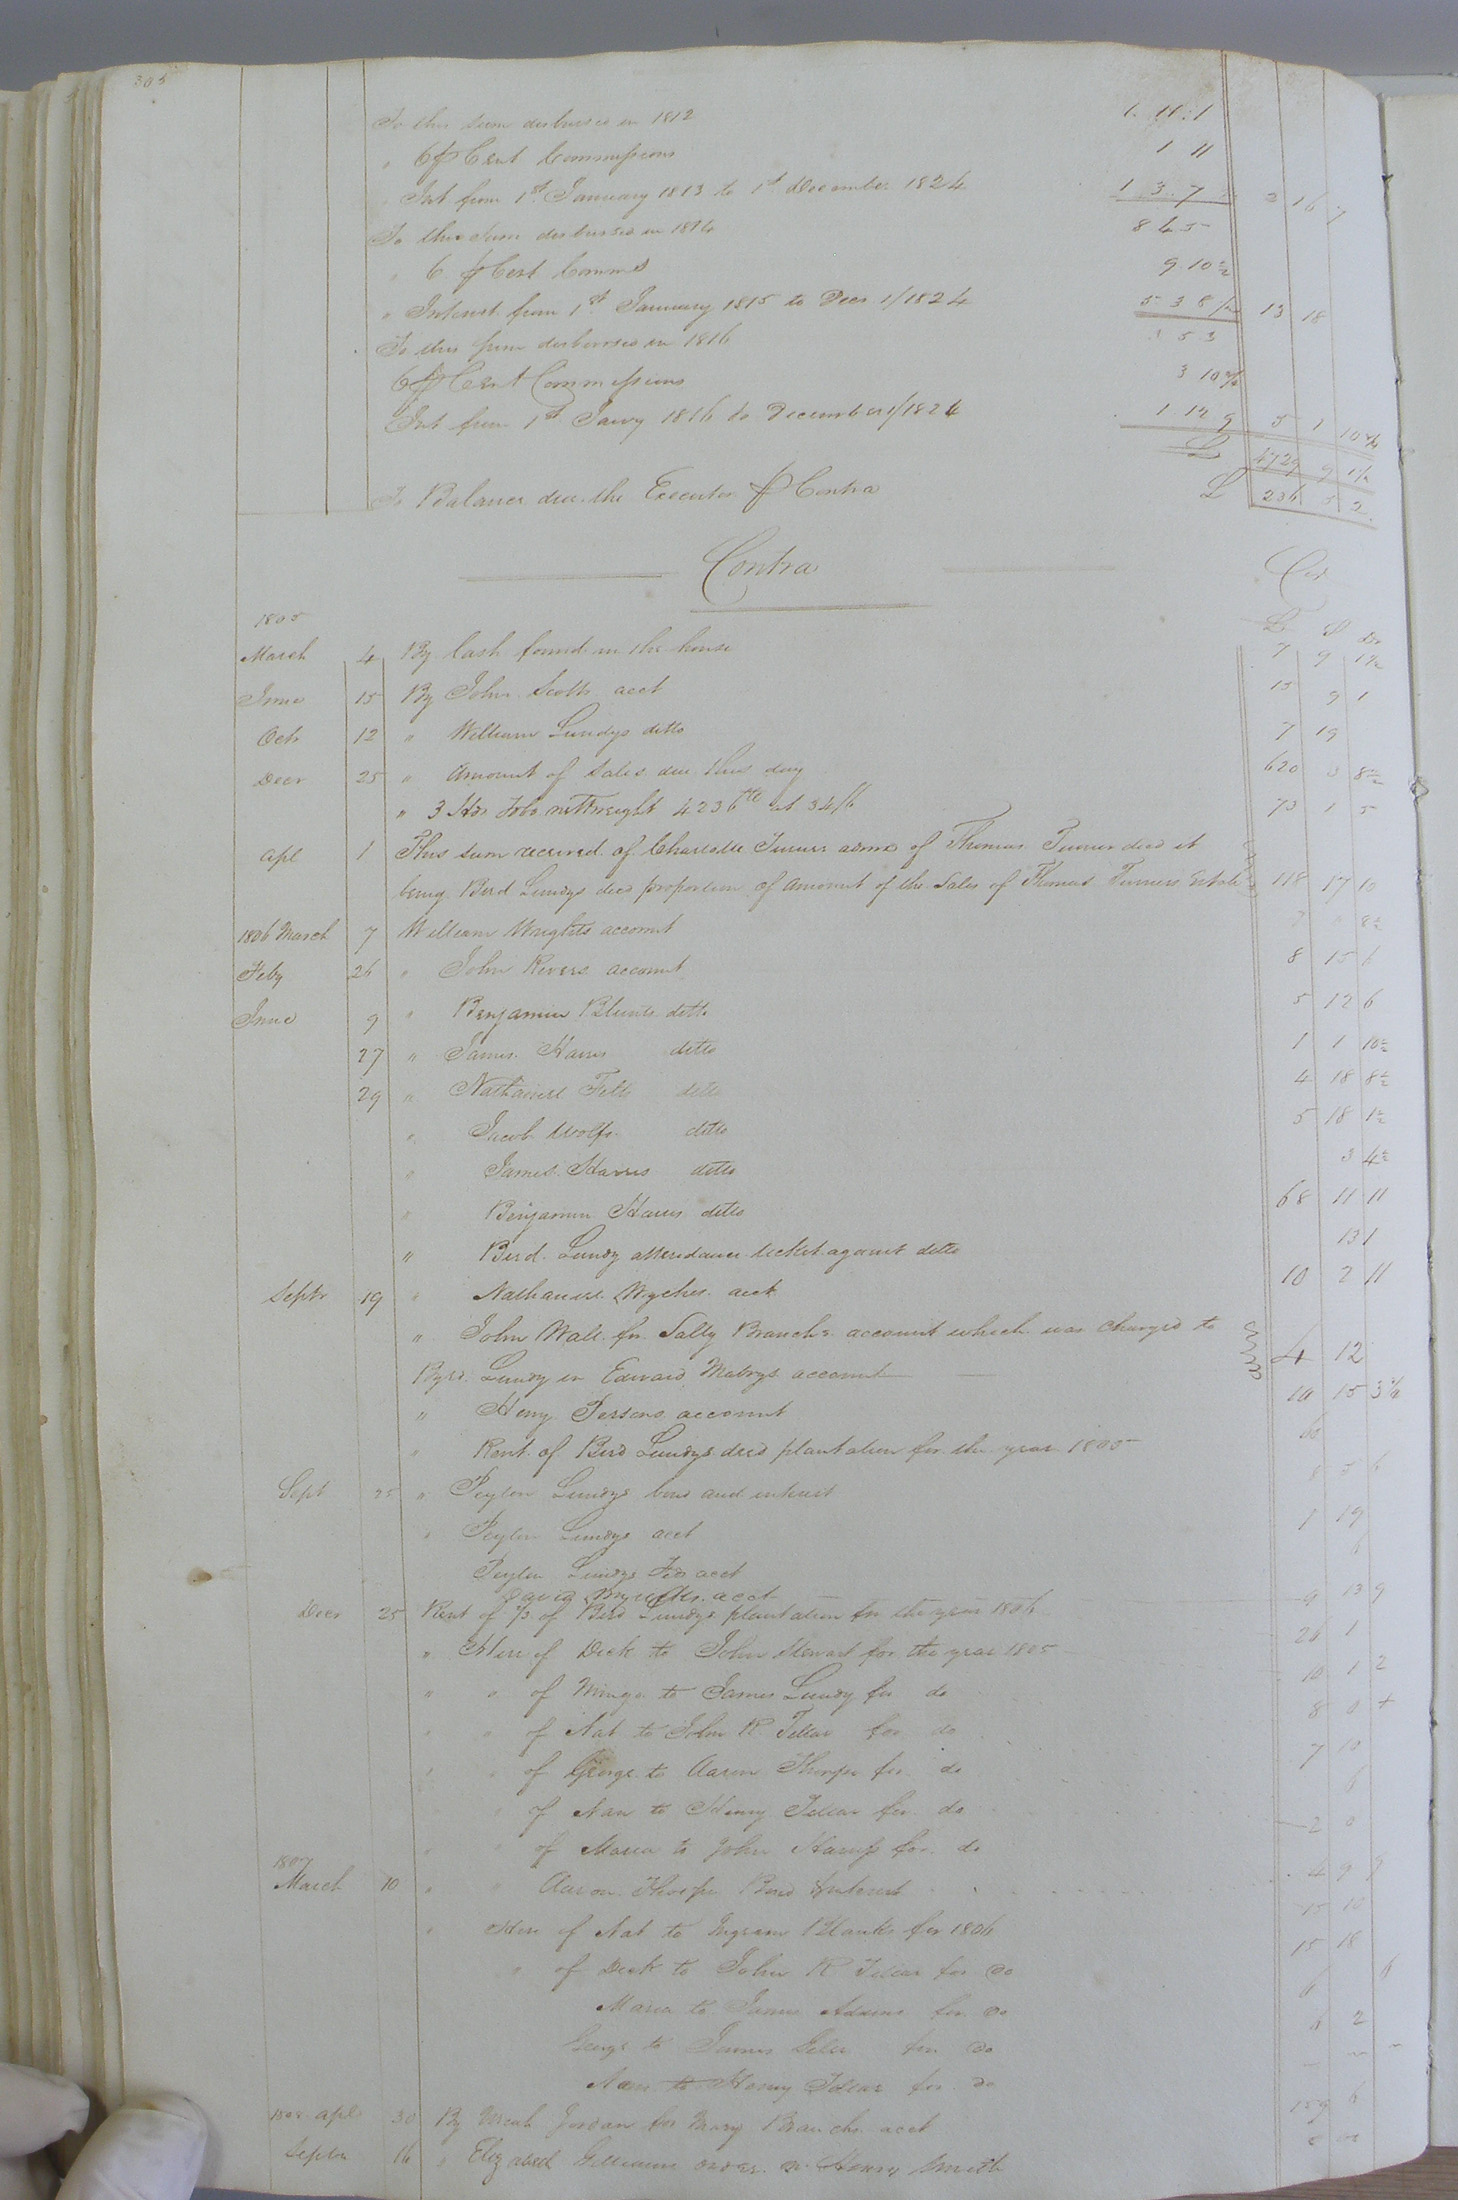 305
To this sum disbursed in 1812 1. 11. 1
" 6 ⅌ Cent Commissions 1 11
Int from 1st January 1813 to 1st December 1824 1 3 7 2 16 7
To this sum disbursed in 1814 8 4 5
" 6 ⅌ Cent Comms 9 10½
" Interest from 1st January 1815 to Decr 1/1824 5 3 8½ 13 18
To this sum disbursed in 1816 3 5 3
6 ⅌ Cent Commissions 3 10½
Int from 1st Jany 1816 to December 1/1824 1 12 9 5 1 10½
£ 4729 9 1½
To Balance due the Executor ⅌ Contra £ 236 5 2
Contra Cr
1805 £ S D
March 4 By Cash found in the house 7 9 1½
June 15 By John Scotts acct 15 9 1
Octr 12 " William Lundys ditto 7 19
Decr 25 " Amount of Sales due this day 620 3 8½
" 3 Hds Tobo nett weight 4236 at 34/6 73 1 5
Apl 1 This sum received of Charlotte Turner admx of Thomas Turner decd it
being Bird Lundys decd proportion of amount of the Sales of Thomas Turners Estate 118 17 10
1806 March 7 William Wrights account 8½
Feby 26 " John Rivers account 8 15 6
June 9 " Benjamin Blunts ditto 5 12 6
27 " James Harris ditto 1 1 10½
29 " Nathaniel Felts ditto 4 18 8½
" Jacob Wolfs ditto 5 18 1½
" James Harris ditto 3 4½
" Benjamin Harris ditto 68 11 11
" Bird Lundy attendance ticket against ditto 13 1
Septr 19 " Nathaniel Wyches acct 10 2 11
" John Wall for Sally Branchs account which was charged to
Byrd Lundy in Edward Mabrys account 4 12
" Henry Persons account 10 15 3½
" Rent of Bird Lundys decd plantation for the year 1805 60
Sept 25 " Peyton Lundys bond and interest 8 5 6
" Peyton Lundys acct 1 19
Peyton Lundys acct 6
David acct
Decr 25 Rent of ⅔ of Bird Lundys plantation for the year 1806 9 13 9
" Hire of Dick to John Stewart for the year 1805 26 1
" " of Mingo to James Lundy for do 10 1 2
" " of Nat to John R Tillar for do 8 0
" " of George to Aaron Thorpe for do 7 10
of Nan to Henry Tillar for do 6
of Maria to John for do 2 0
1807
March 10 " " Aaron Thorpe Bond Interest 4 9 9
" Hire of Nat to Ingram Blanks for 1806 15 10
" of Dick to John R Tillar for do 15 18
Maria to James Adams for do 6 6
George to James for do 6 2
Nan to Henry Tillar for do
apl 30 By Jordan for Mary Branchs acct 159 6
Septr 16 " Gilliams order Henry Smith